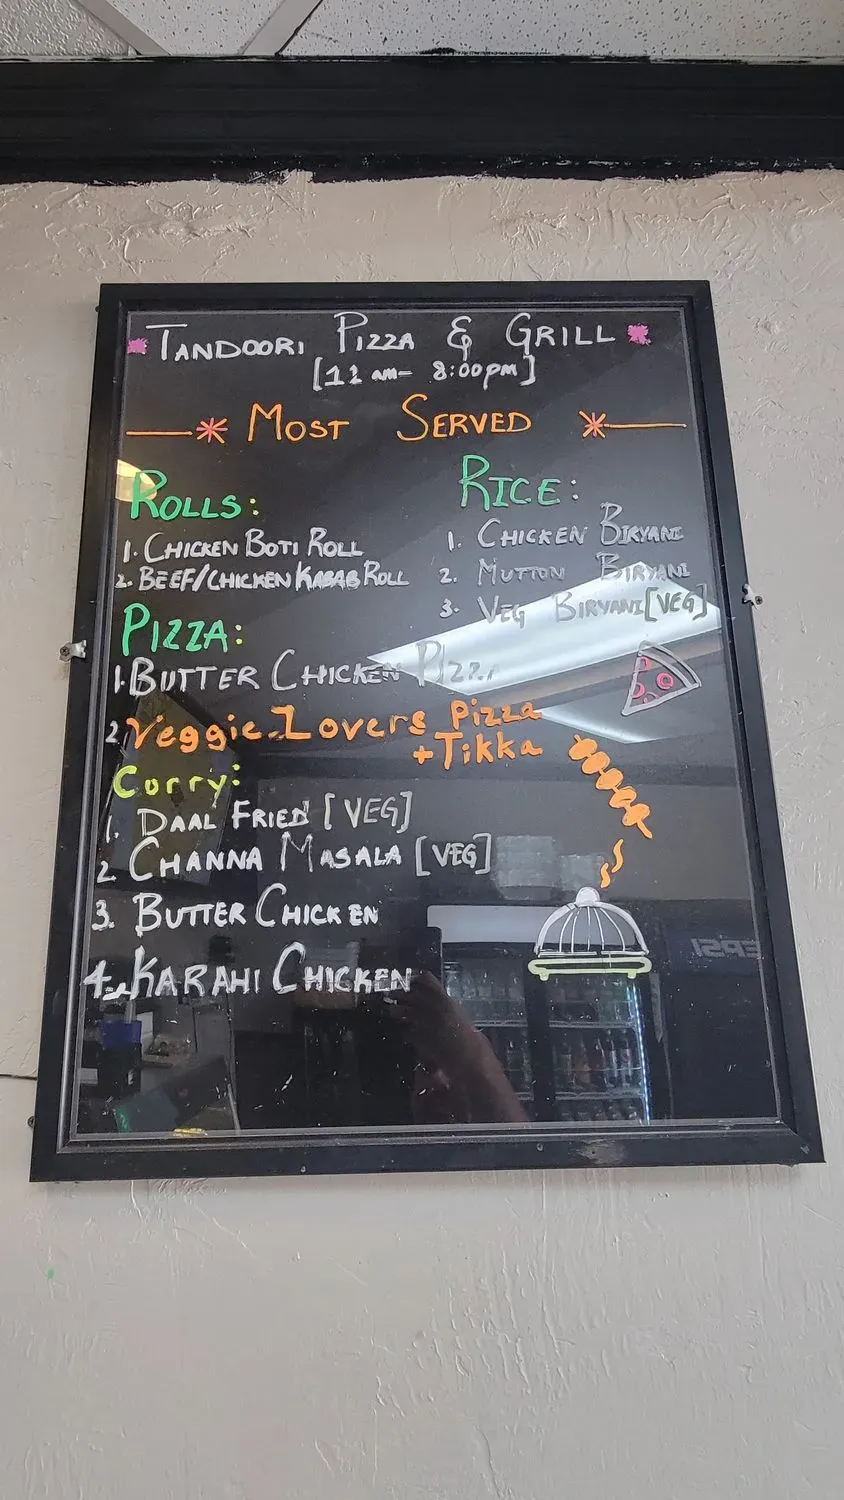 TANDOORI PIZZA & GRILL
[11 am- 8:00pm]
MOST SERVED
ROLLS:
1. CHICKEN BOTI ROLL
2. BEEF/CHICKEN KABAB ROLL
RICE:
1. CHICKEN BIRYANI
2. MUTTON BIRYANI
3. VEG BIRYANI [VEG]
PIZZA:
1. BUTTER CHICKEN PIZZA
2. Veggie Lovers Pizza
+Tikka
Curry:
1. DAAL FRIED [VEG]
2. CHANNA MASALA [VEG]
3. BUTTER CHICKEN
4. KARAHI CHICKEN
PEPSI